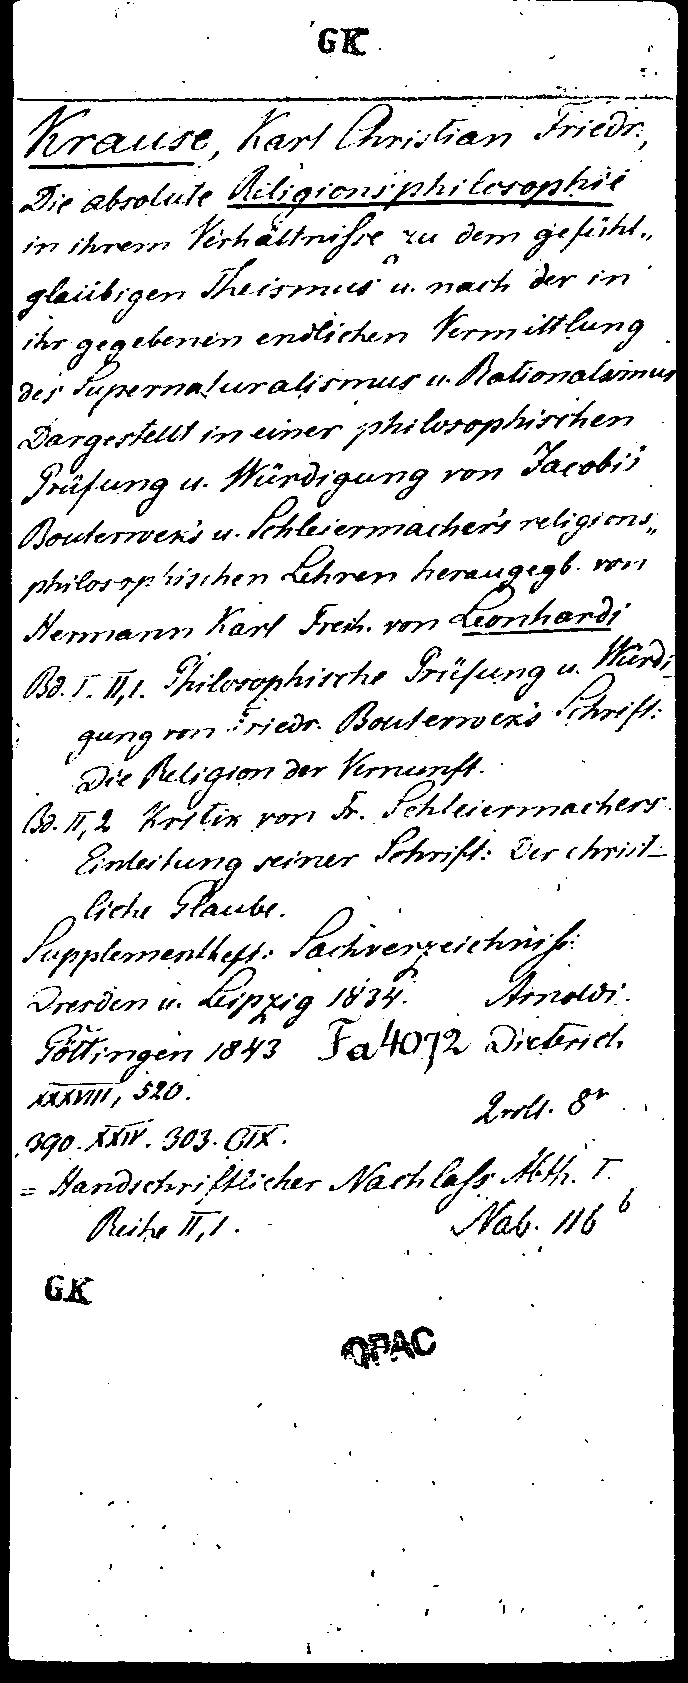 GK
Krause, Karl Christian Friedr.,
Die absolute Religionsphilosophie
in ihrem Verhältnisse zu dem gefühl„
gläubigen Theismus u. nach der in
ihr gegebenen endlichen Vermittlung
des Supernaturalismus u. Rationalismus
Dargestellt in einer philosophischen
Prüfung u. Würdigung von Jacobi's
Bouterwek's u. Schleiermacher's religions„
philosophischen Lehren heraugegb. von
Hermann Karl Freih. von Leonhardi
Bd. I. II,1. Philosophische Prüfung u. Würdi
gung von Friedr. Bouterwek's Schrift:
Die Religion der Vernunft.
Bd. II,2 Kritik von Fr. Schleiermachers
Einleitung seiner Schrift: Der christ-
liche Glaube.
Supplementheft: Sachverzeichniss:
Dresden u. Leipzig 1834. Arnoldi.
Göttingen 1843 Fa4072 Dieterich
XXXVIII, 520.
2 voll. 8r
390. XXIV. 303. CIX.
= Handschriftlicher Nachlass Abth. I.
Reihe II,1. Nab. 116 b
GK
OPAC